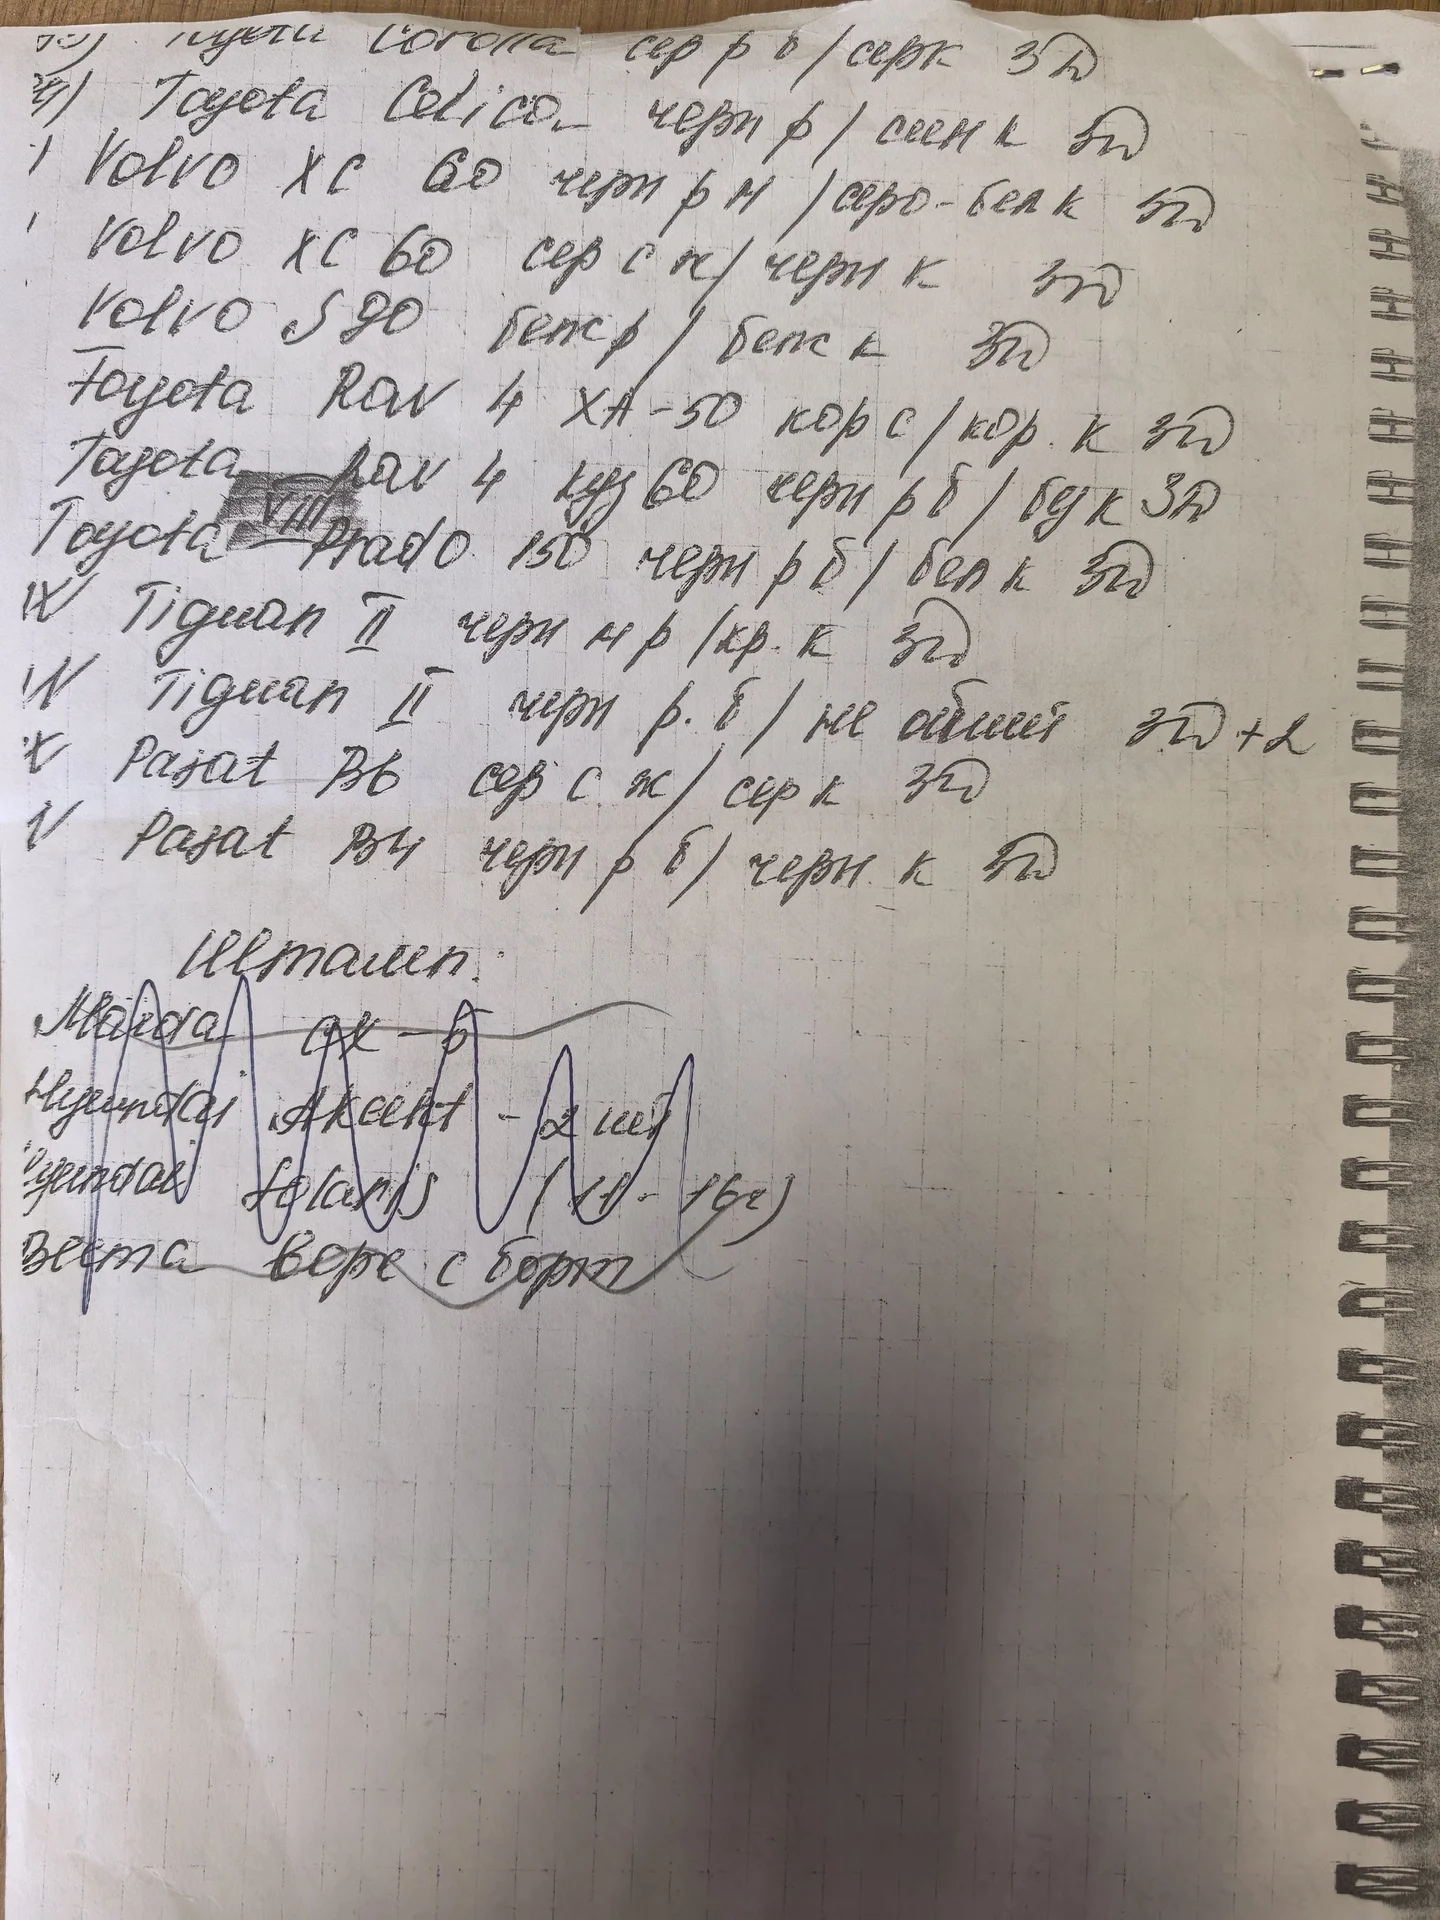 Toyota Corolla сер р б / сер к 3D
Toyota Celica черн р / син к 3D
Volvo XC 60 черн р н / серо-бел к 3D
Volvo XC 60 сер с ж / черн к 3D
Volvo S90 беж р / беж к 3D
Toyota Rav 4 XA-50 кор с / кор. к 3D
Toyota Rav 4 куз 60 черн р б / беж к 3D
VIII
Toyota Prado 150 черн р б / бел к 3D
IX Tiguan II черн н р / кр. к 3D
IV Tiguan II черн р. б / не обший 3D +2
X Pasat B6 сер с ж / сер к 3D
V Pasat B4 черн р б / черн. к 3D
Штамп:
Mazda CX-5
Hyundai Akcent - 2 шт
Hyundai Solaris (11 - 16г)
Веста верх с борт